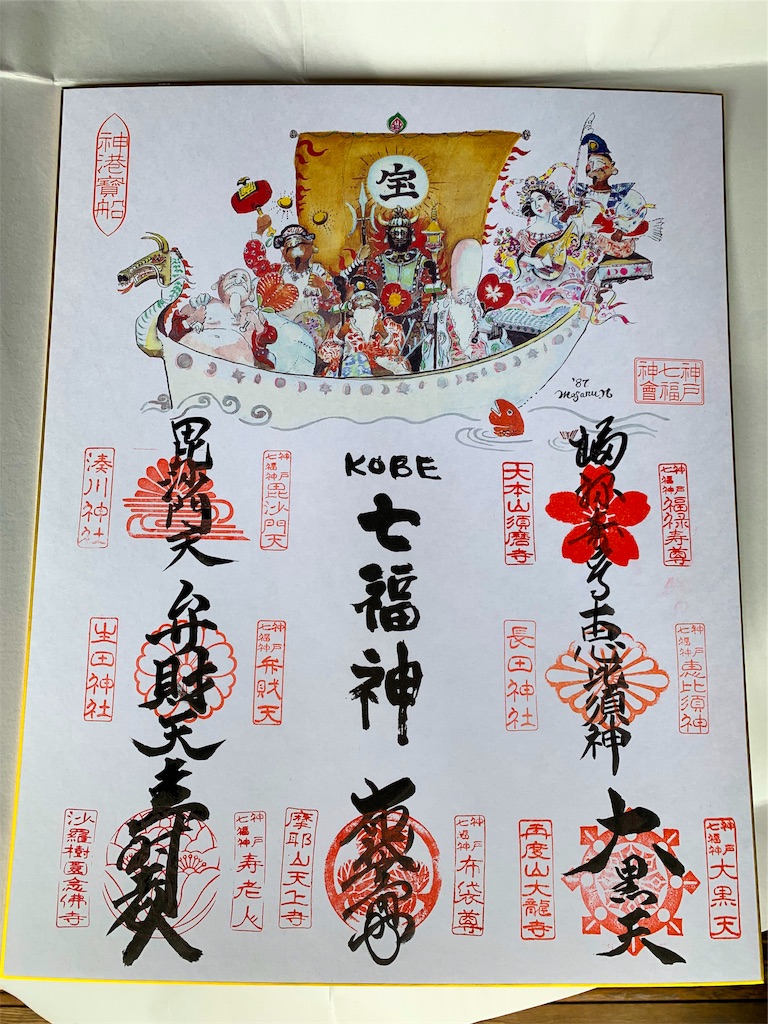 神港寳船
宝
'87
Masaru N
神戸七福神會
KOBE
七福神
神戸七福神 福禄寿尊
福禄寿尊
大本山須磨寺
神戸七福神 毘沙門天
毘沙門天
湊川神社
神戸七福神 恵比須神
恵比須神
長田神社
神戸七福神 弁財天
弁財天
生田神社
神戸七福神 大黒天
大黒天
再度山大龍寺
神戸七福神 布袋尊
摩耶山天上寺
神戸七福神 寿老人
寿老人
沙羅樹園念佛寺